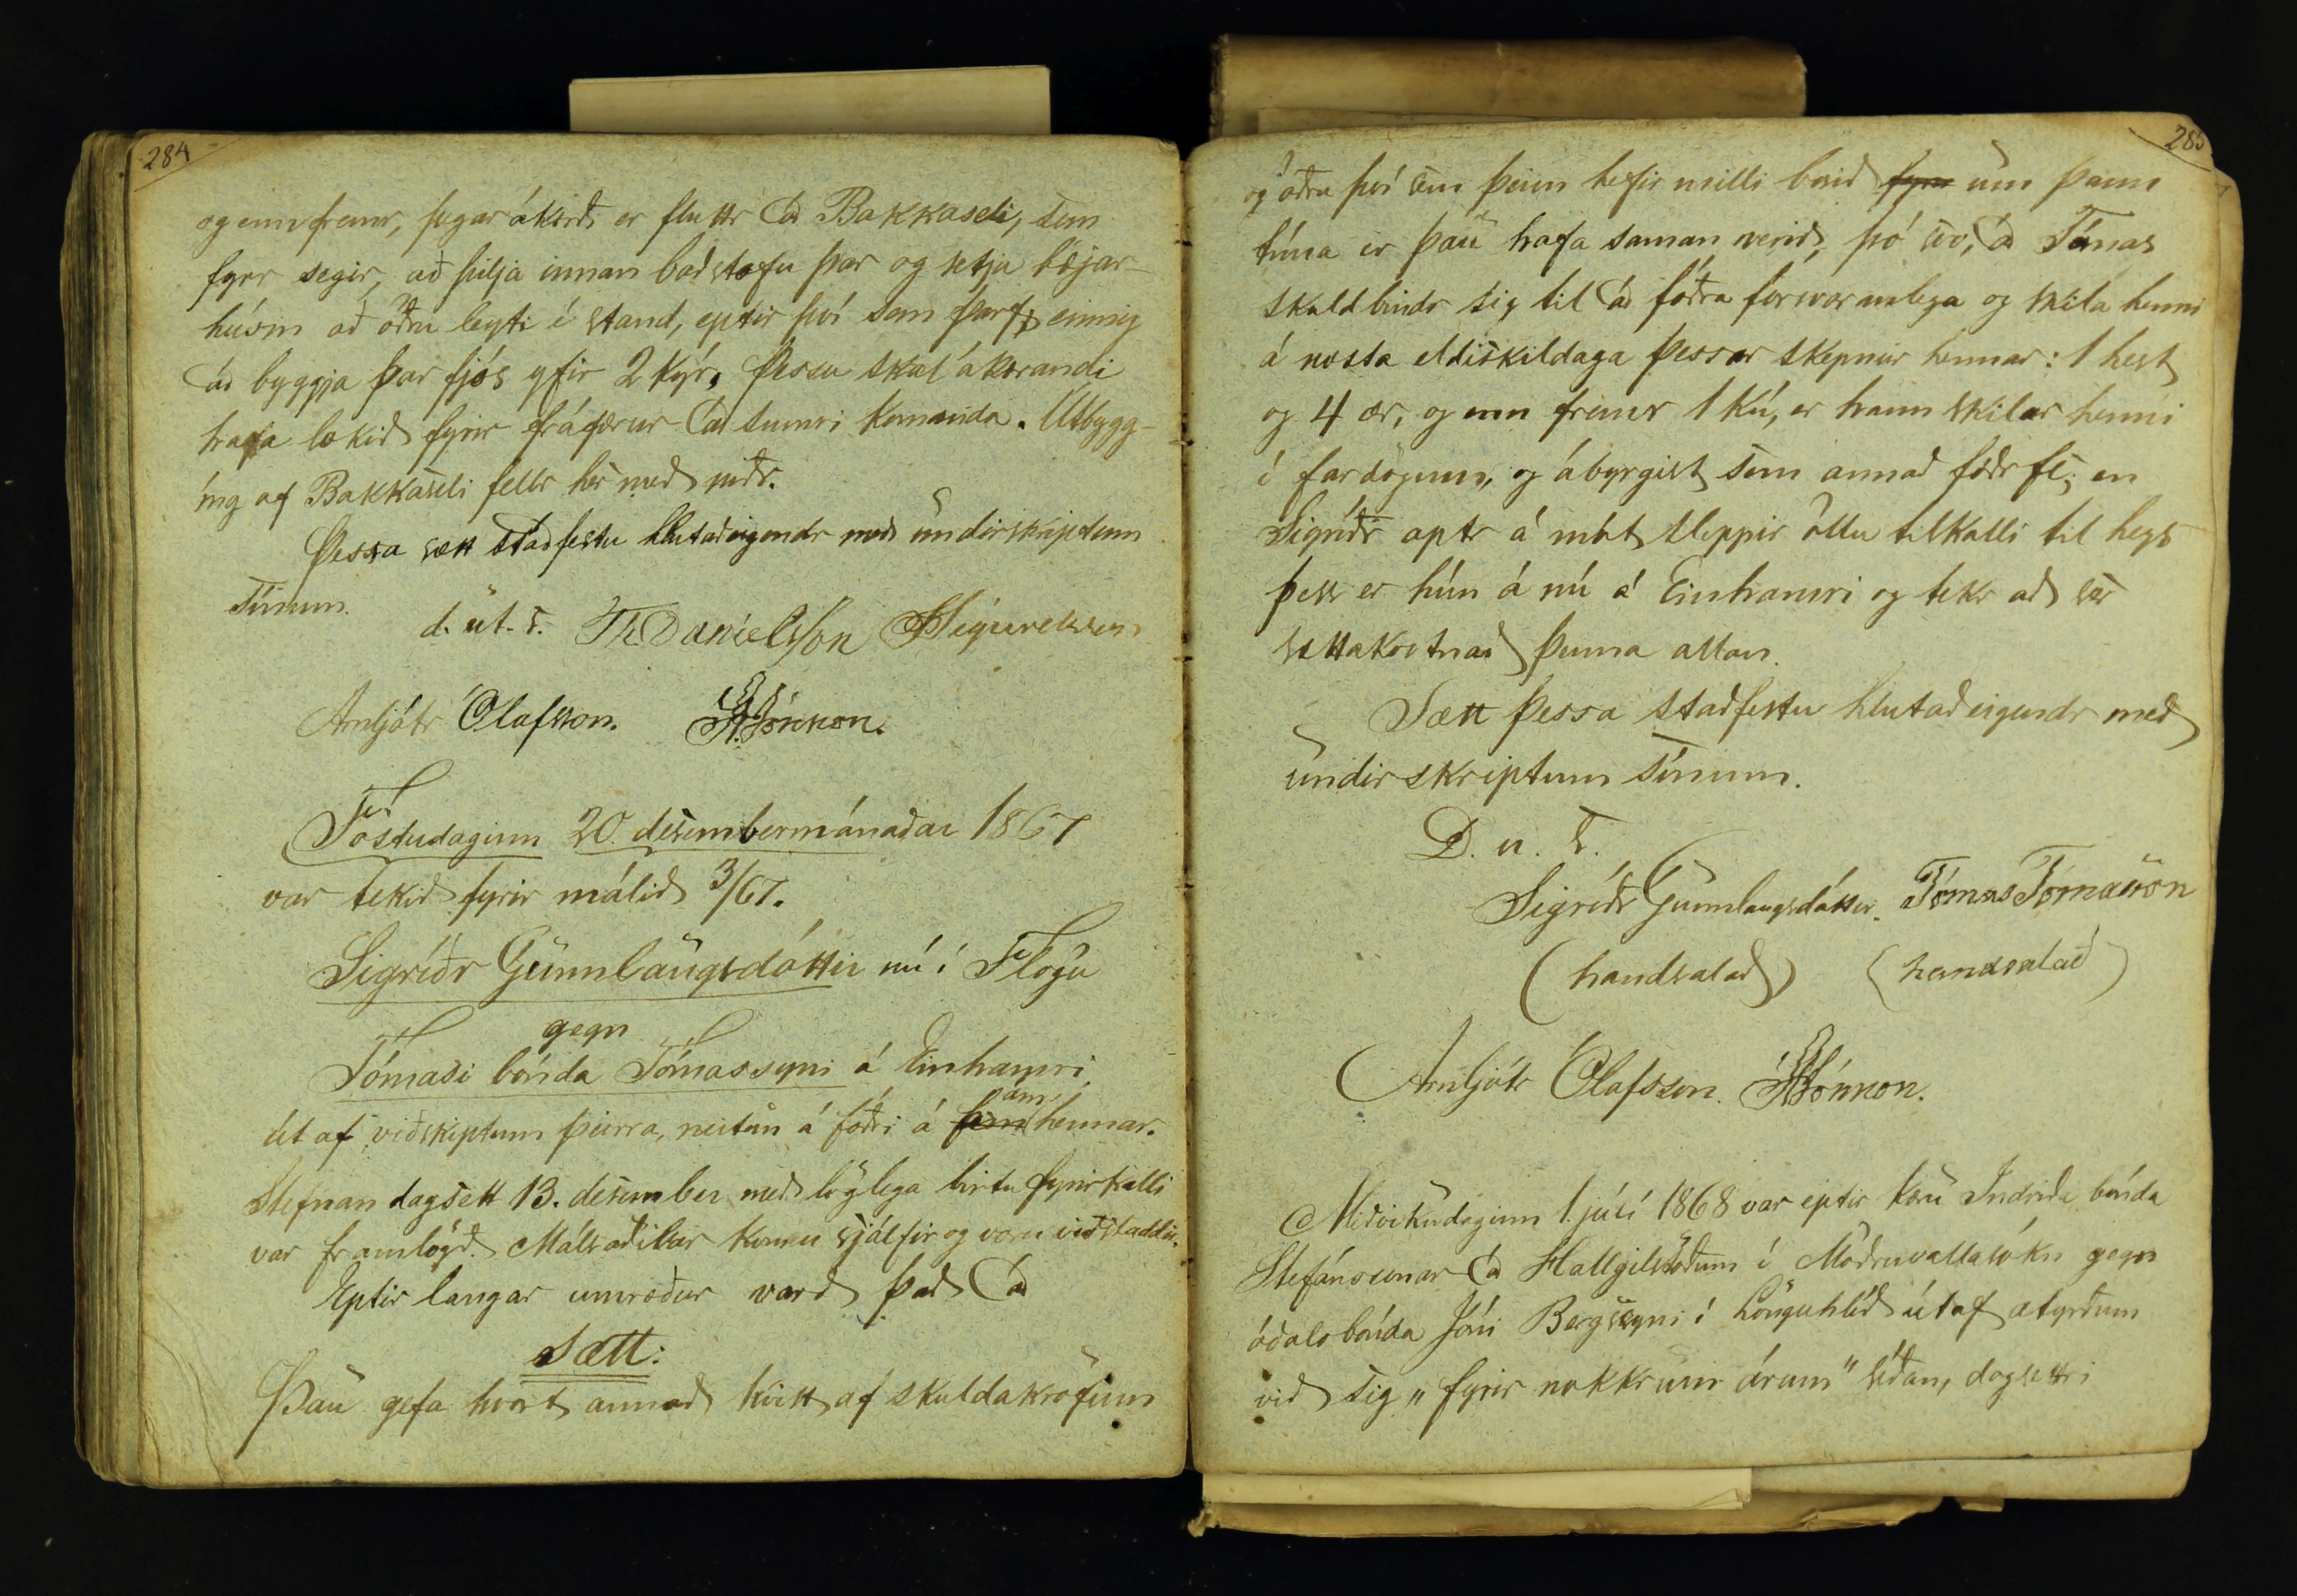 284
og ennfremr, þegar ákærði er fluttr að Bakkaseli, sem
fyrr segir, að þilja innan baðstofu þar og setja bæjar-
húsin að öðru leyti í stand, eptir því sem þarf; einnig
að byggja þar fjós yfir 2 kýr. Þessu skal ákærandi
hafa lokið fyrir fráfærur að sumri komanda. Útbygg-
íng af Bakkaseli fellr hér með niðr.
Þessa sætt staðfestu hlutaðeigendr með undirskriptum
sínum.
d. út. s. Th Danielsson Sigurdsson
Arnljótr Ólafsson. St. Jónsson.
Föstudaginn 20. desembermánaðar 1867
var tekið fyrir málið 3/67.
Sigríðr Gunnlaugsdóttir nú í Flögu
gegn
Tómasi bónda Tómassyni á Einhamri
út af viðskiptum þeirra, neitun á fóðri á ám hennar.
Stefnan dagsett 13. desember með löglega birtu fyrirkalli
var framlögð. Málsaðilar komu sjálfir og voru viðstaddir.
Eptir langar umræður varð það að
Sætt:
Þau gefa hvort annað kvitt af skuldakröfum
285
og öðru því sem þeim hefir milli borið fyrir um þann
tíma er þau hafa saman verið, þó svo, að Tómas
skuldbindr sig til að fóðra forsvaranlega og skila henni
á næsta eldiskildaga þessar skepnur hennar: 1 hest
og 4 ær, og enn fremr 1 kú, er hann skilar henni
í fardögum, og ábyrgist sem annað fóðrfé; en
Sigríðr aptr á mót sleppir öllu tilkalli til heys
þess er hún á nú á Einhamri og tekr að sér
sáttakostnað þenna allan.
Sætt þessa staðfestu hlutaðeigendr með
undirskriptum sínum.
D. u. s.
Sigríðr Gunnlaugsdóttir. Tómas Tómasson
(handsalað) (handsalað)
Arnljótr Ólafsson. St Jónsson.
Miðvikudaginn 1. júlí 1868 var eptir kæru Indriða bónda
Stefánssonar að Hallgilsstöðum í Möðruvallasókn gegn
óðalsbónda Jóni Bergssyni í Lönguhlíð útaf atyrðum
við sig „fyrir nokkrum árum" síðan, dagsettri